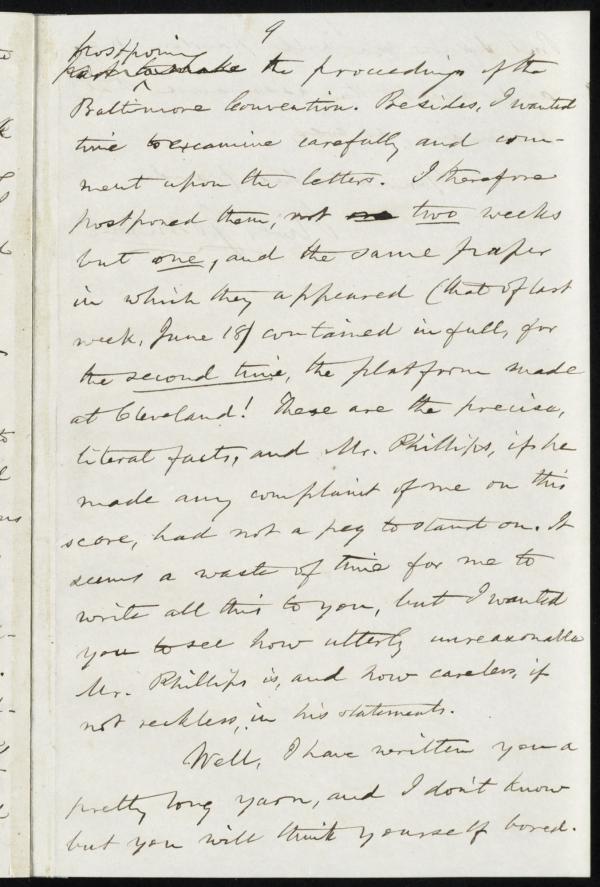 9
postponing
the proceedings of the
Baltimore Convention. Besides, I wanted
time to examine carefully and com-
ment upon the letters. I therefore
postponed them, not two weeks
but one, and the same paper
in which they appeared (that of last
week, June 18) contained in full, for
the second time, the platform made
at Cleveland! These are the precise,
literal facts, and Mr. Phillips, if he
made any complaint of me on this
score, had not a peg to stand on. It
seems a waste of time for me to
write all this to you, but I wanted
you to see how utterly unreasonable
Mr. Phillips is, and how careless, if
not reckless, in his statements.
Well, I have written you a
pretty long yarn, and I don't know
but you will think yourself bored.